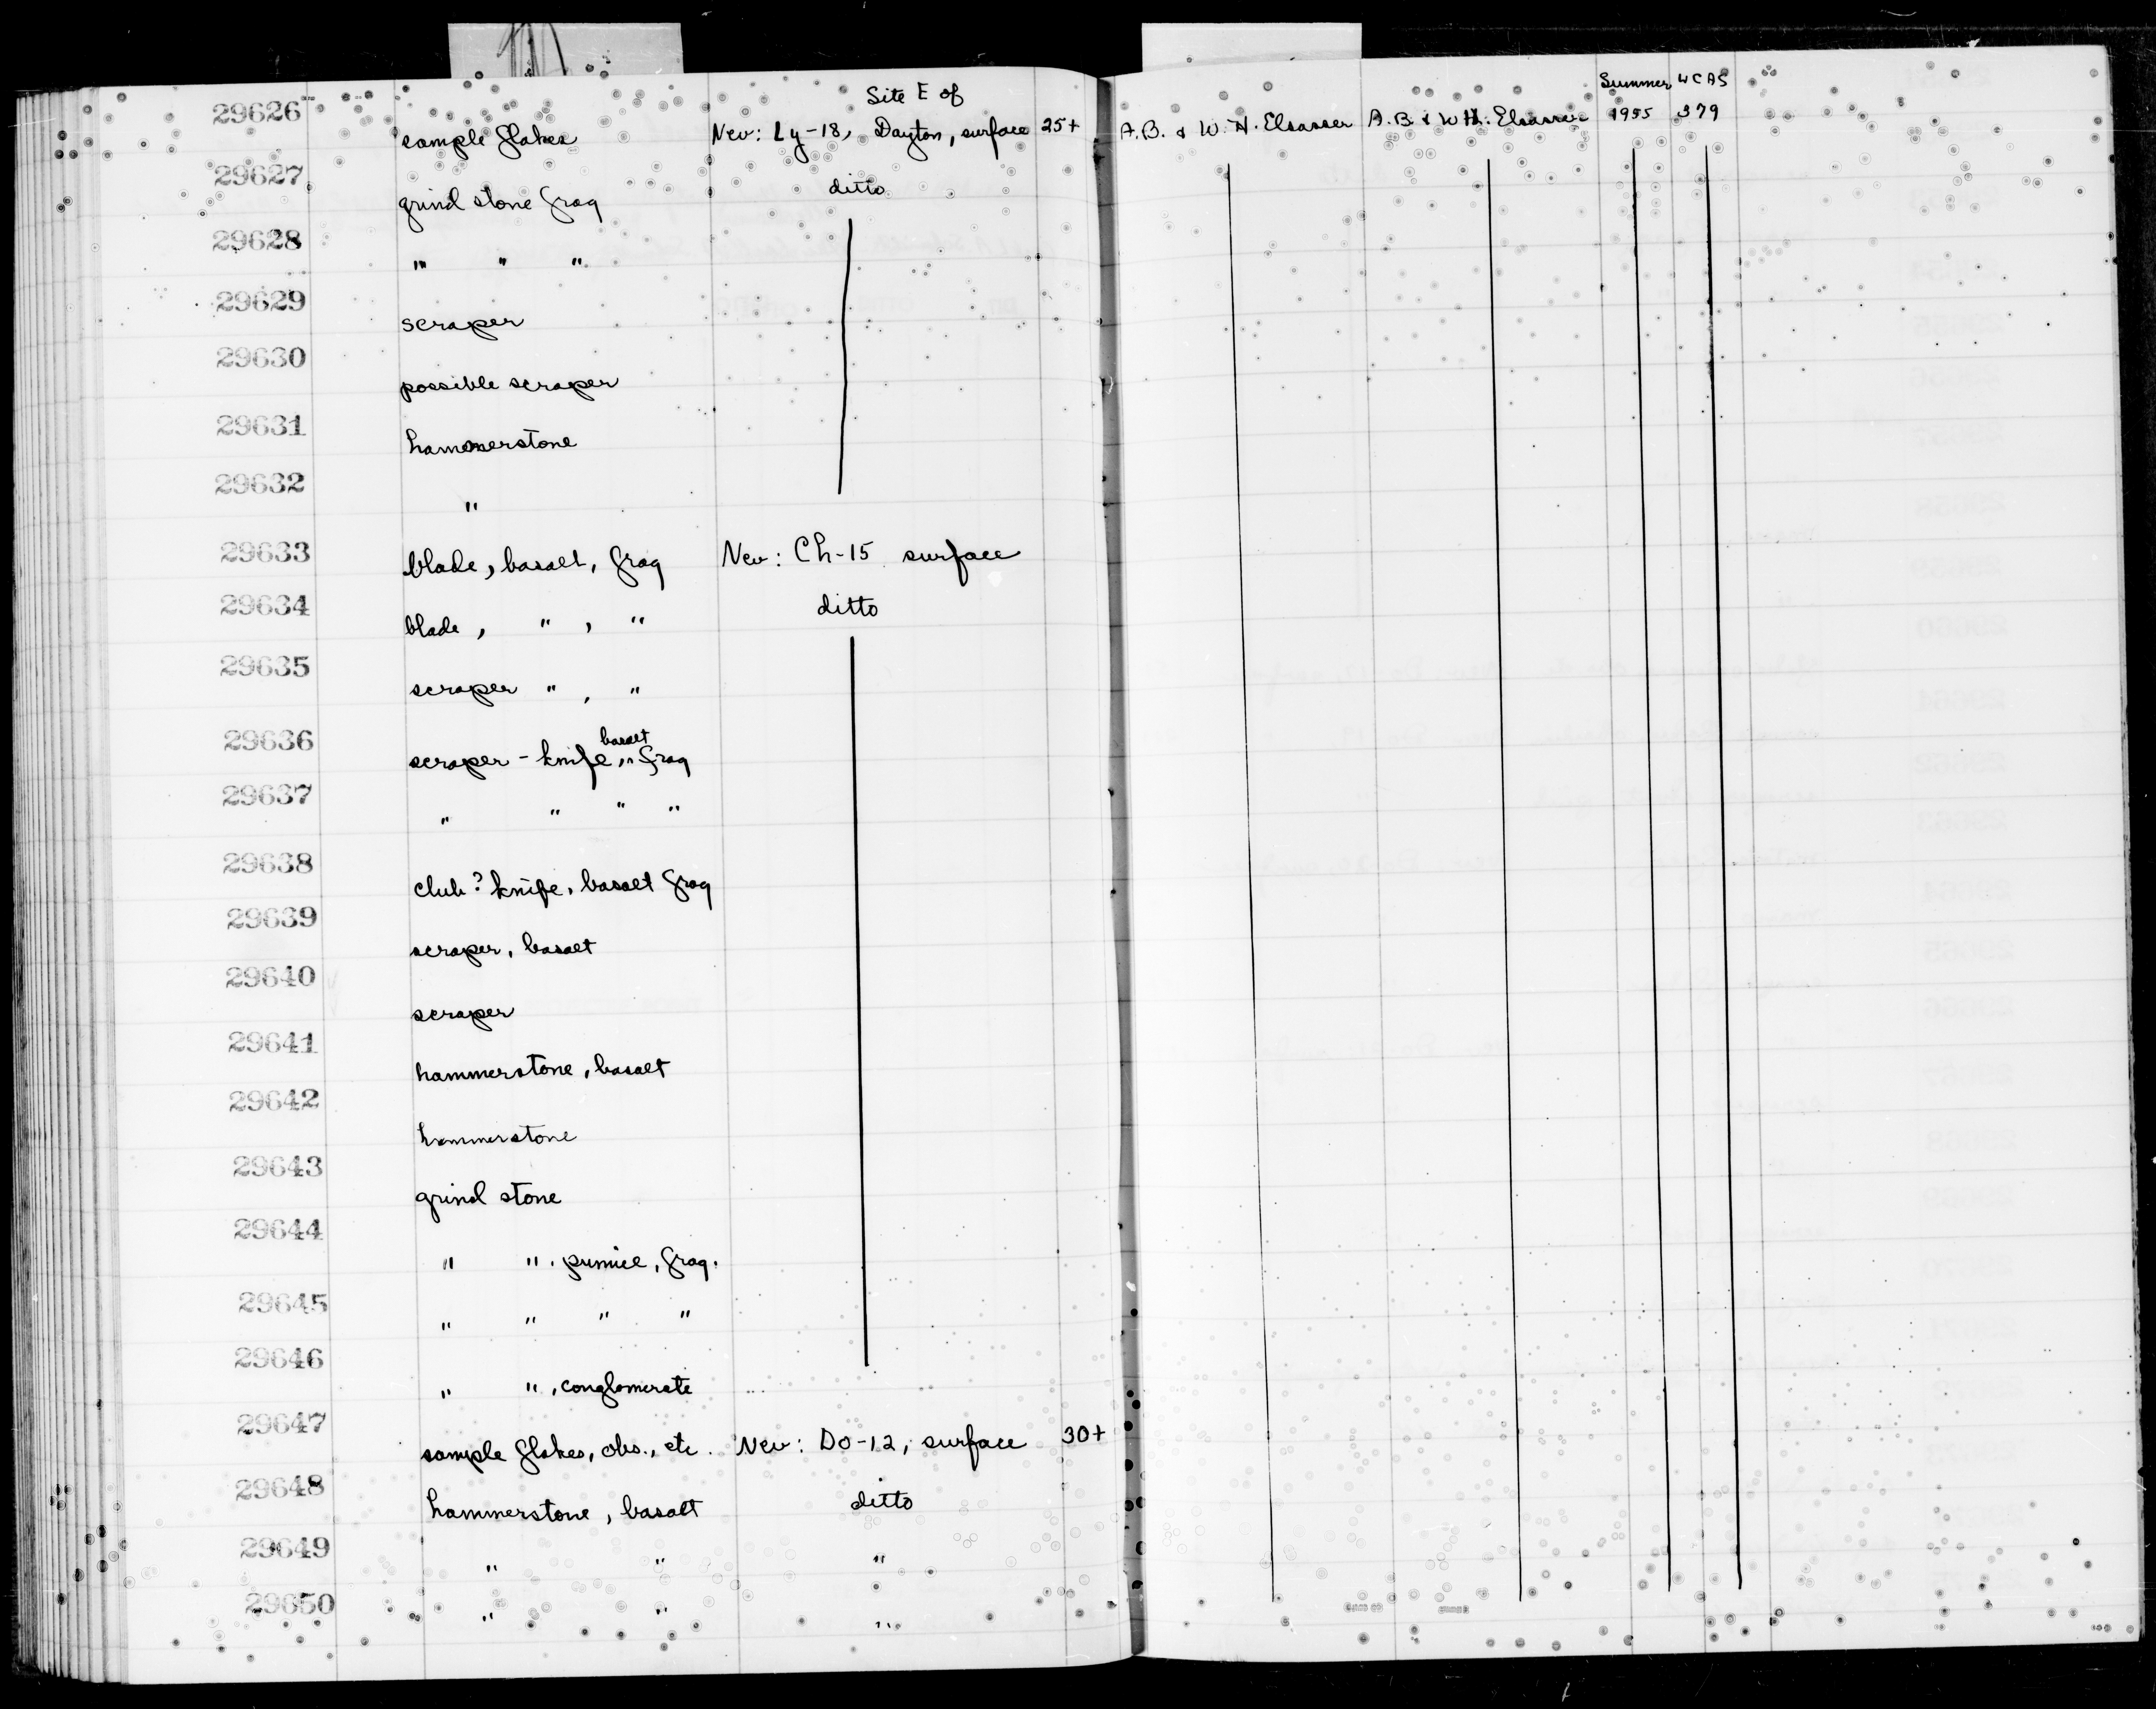 Site E of Summer UCAS
29626 sample flakes Nev: Ly-18, Dayton, surface 25+ A.B. & W. H. Elsasser A.B. & W.H. Elsasser 1955 379
29627 grind stone frag ditto
29628 " " "
29629 scraper
29630 possible scraper
29631 hammerstone
29632 "
29633 blade, basalt, frag Nev: Ch-15 surface
29634 blade, " , " ditto
29635 scraper " , "
29636 scraper - knife, basalt " frag
29637 " " " "
29638 club? knife, basalt frag
29639 scraper, basalt
29640 scraper
29641 hammerstone, basalt
29642 hammerstone
29643 grind stone
29644 " ", pumice, frag.
29645 " " " "
29646 " ", conglomerate
29647 sample flakes, obs., etc. Nev: Do-12, surface 30+
29648 hammerstone, basalt ditto
29649 " " "
29650 " " "